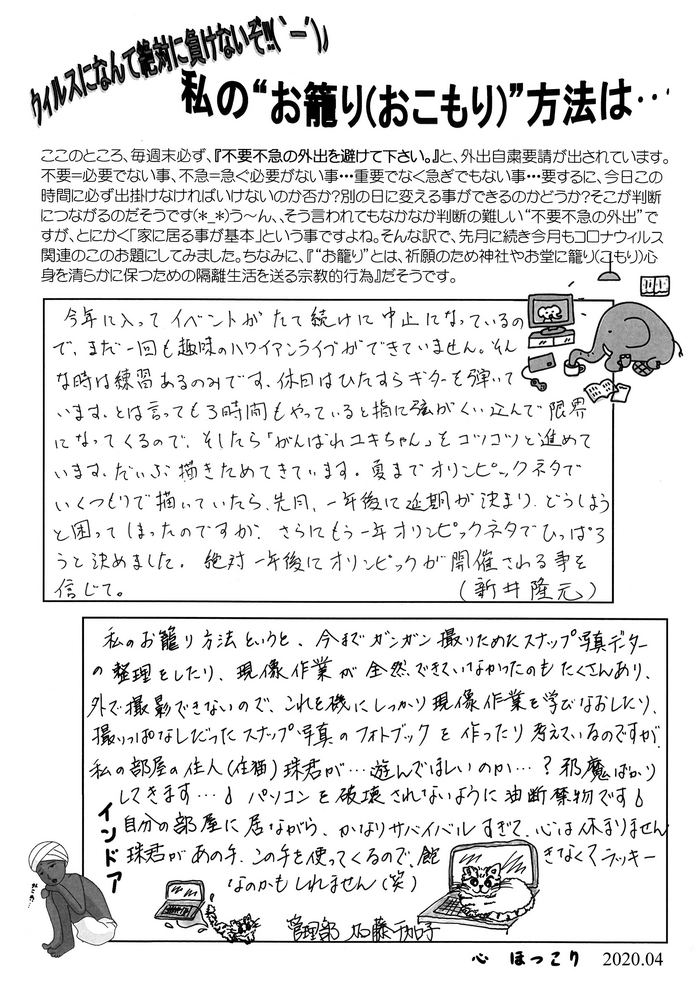 ウィルスになんて絶対に負けないぞ!!(｀ー´)ﾉ
私の“お籠り(おこもり)”方法は…
ここのところ、毎週末必ず、『不要不急の外出を避けて下さい。』と、外出自粛要請が出されています。
不要=必要でない事、不急=急ぐ必要がない事…重要でなく急ぎでもない事…要するに、今日この
時間に必ず出掛けなければいけないのか否か?別の日に変える事ができるのかどうか?そこが判断
につながるのだそうです(*_*)う～ん、、そう言われてもなかなか判断の難しい“不要不急の外出”で
すが、とにかく「家に居る事が基本」という事ですよね。そんな訳で、先月に続き今月もコロナウィルス
関連のこのお題にしてみました。ちなみに、『“お籠り”とは、祈願のため神社やお堂に籠り(こもり)心
身を清らかに保つための隔離生活を送る宗教的行為』だそうです。
今年に入ってイベントがたて続けに中止になっているの
で、まだ一回も趣味のハワイアンライブができていません。そん
な時は練習あるのみです、休日はひたすらギターを弾いて
います、とは言っても3時間もやっていると指に弦がくい込んで限界
になってくるので、そしたら「がんばれユキちゃん」をコツコツと進めて
います、だいぶ描きためてきています。夏までオリンピックネタで
いくつもりで描いていたら、先月、一年後に延期が決まり、どうしよう
と困ってしまったのですが、さらにもう一年オリンピックネタでひっぱろ
うと決めました。絶対一年後にオリンピックが開催される事を
信じて。 (新井隆元)
私のお籠り方法というと、今までガンガン撮りためたスナップ写真データー
の整理をしたり、現像作業が全然できていなかったのもたくさんあり、
外で撮影できないので、これを機にしっかり現像作業を学びなおしたり、
撮りっぱなしだったスナップ写真のフォトブックを作ったり考えているのですが、
私の部屋の住人(住猫)珠君が…遊んでほしいのか…?邪魔ばかり
してきます…! パソコンを破壊されないように油断禁物です!
自分の部屋に居ながら、かなりサバイバルすぎて、心は休まりません
珠君があの手、この手を使ってくるので、飽きなくてラッキー
なのかもしれません(笑)
インドア
管理部 加藤
心 ほっこり 2020.04